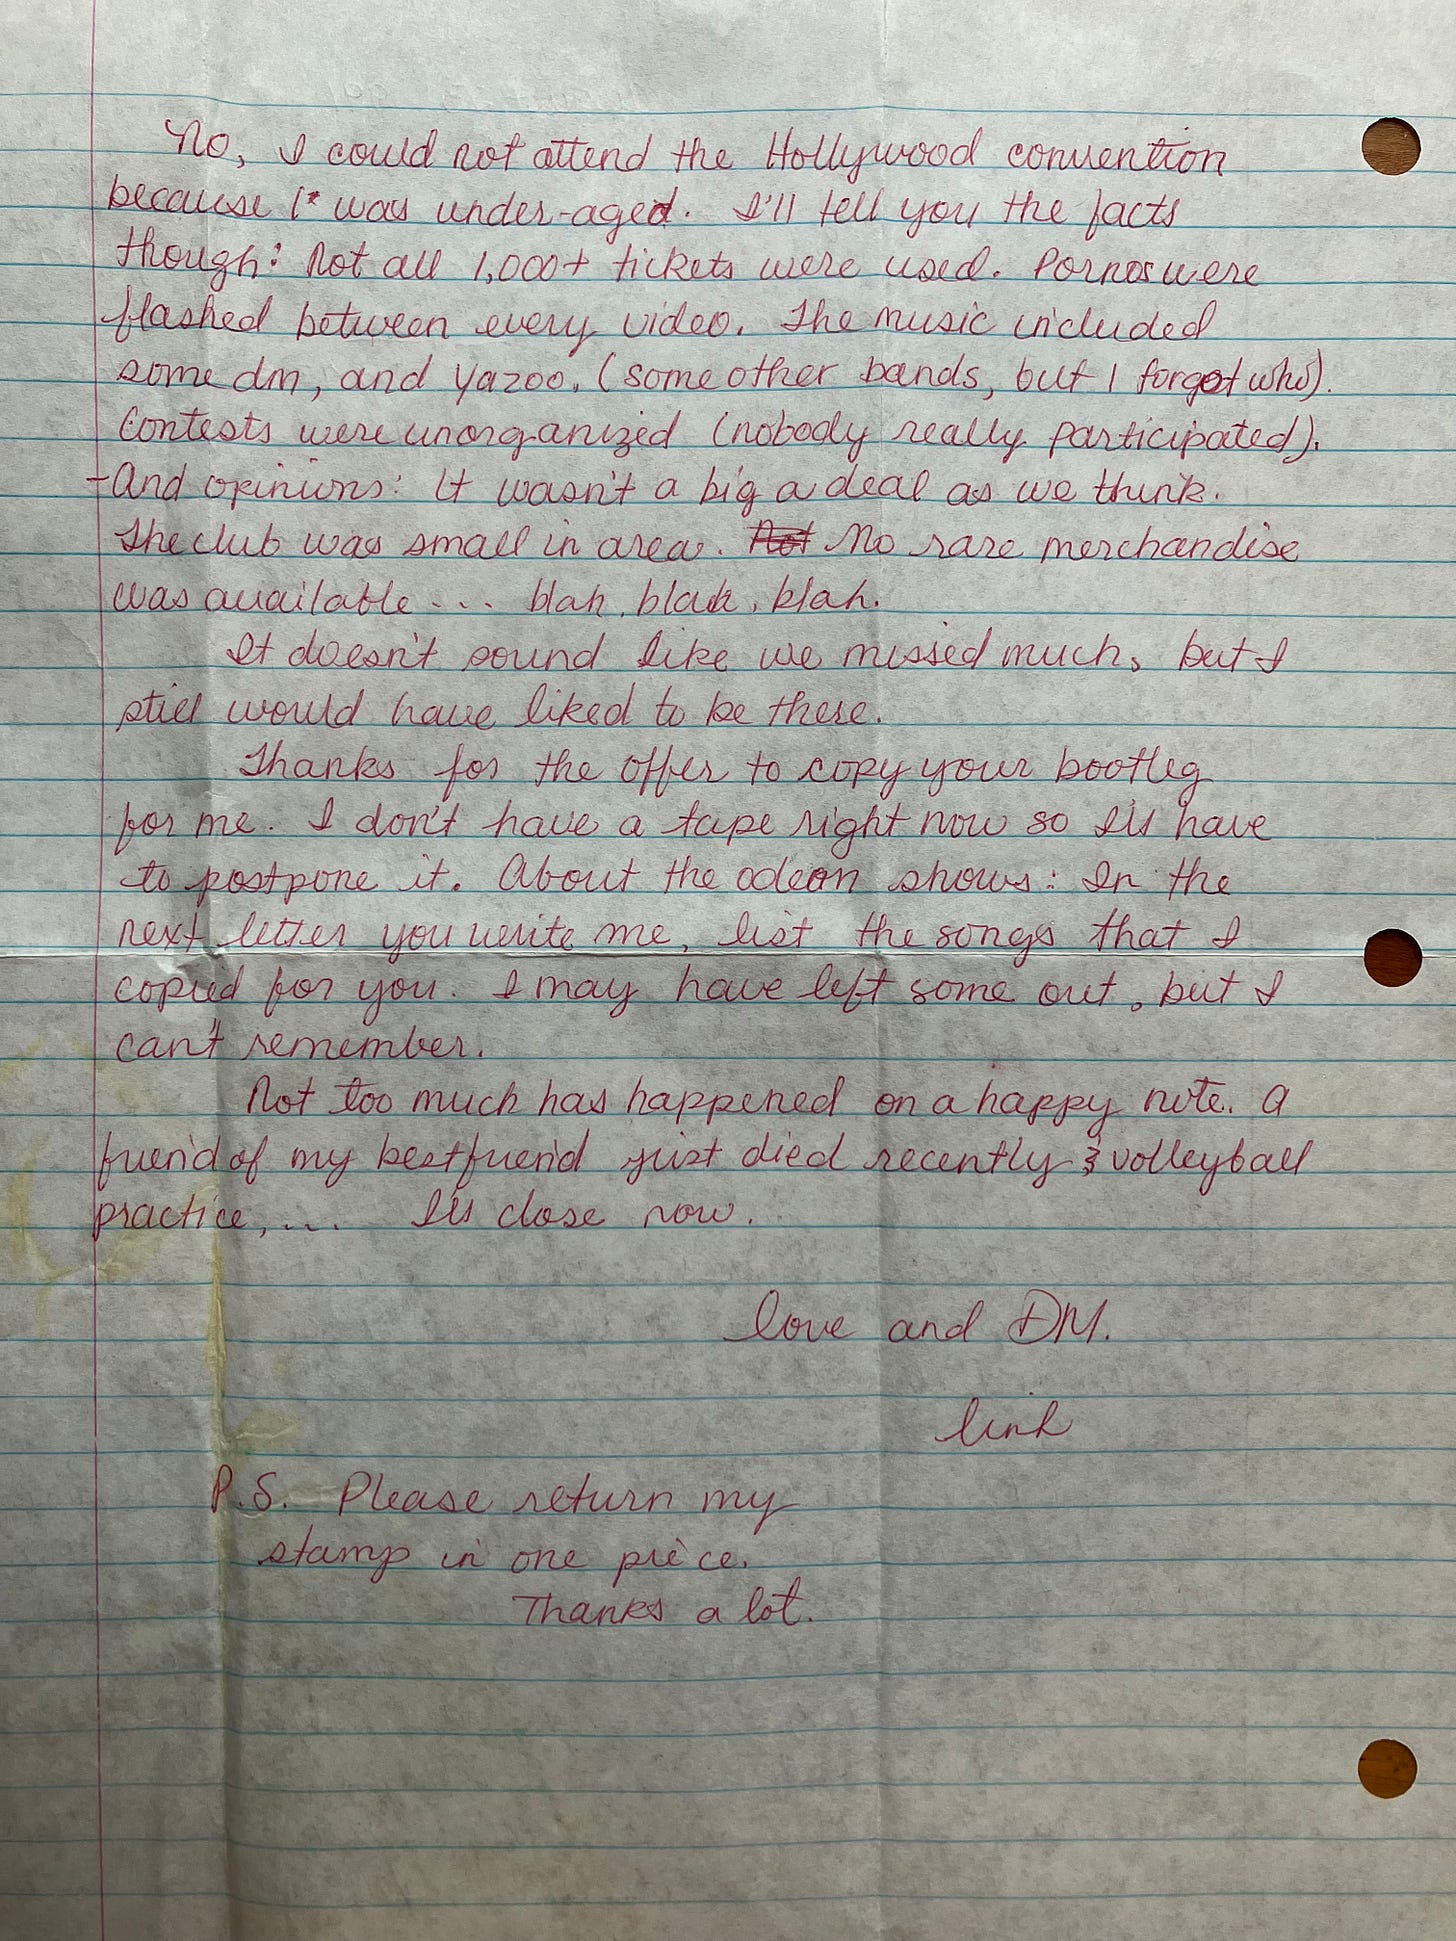 No, I could not attend the Hollywood convention
because I was under-aged. I'll tell you the facts
though: Not all 1,000+ tickets were used. Pornos were
flashed between every video. The music included
some dm, and yazoo. (some other bands, but I forgot who).
Contests were unorganized (nobody really participated).
-And opinions: It wasn't a big a deal as we think.
The club was small in area. Not No rare merchandise
was available... blah, blah, blah.
It doesn't sound like we missed much, but I
still would have liked to be there.
Thanks for the offer to copy your bootleg
for me. I don't have a tape right now so I'll have
to postpone it. About the odeon shows: In the
next letter you write me, list the songs that I
copied for you. I may have left some out, but I
can't remember.
Not too much has happened on a happy note. A
friend of my bestfriend just died recently & volleyball
practice,... I'll close now.
love and DM.
link
P.S. Please return my
stamp in one piece.
Thanks a lot.